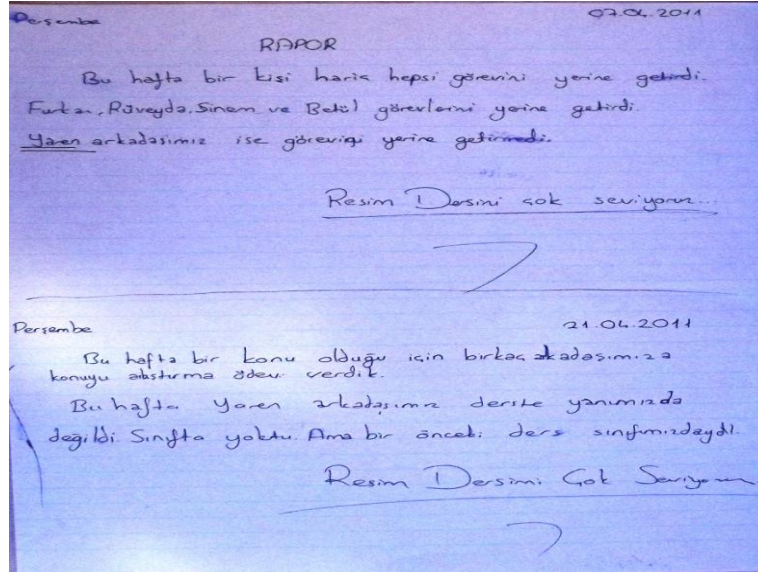 Perşembe 07.04.2011
RAPOR
Bu hafta bir kişi hariç hepsi görevini yerine getirdi.
Furkan, Rüveyda, Sinem ve Betül görevlerini yerine getirdi.
Yaren arkadaşımız ise görevini yerine getirmedi.
Resim Dersini çok seviyoruz...
Perşembe 21.04.2011
Bu hafta bir konu olduğu için birkaç akadaşımıza
konuyu alıştırma ödevi verdik.
Bu hafta Yaren arkadaşımız derste yanımızda
değildi. Sınıfta yoktu. Ama bir önceki ders sınıfımızdaydı.
Resim Dersimi Çok Seviyorum